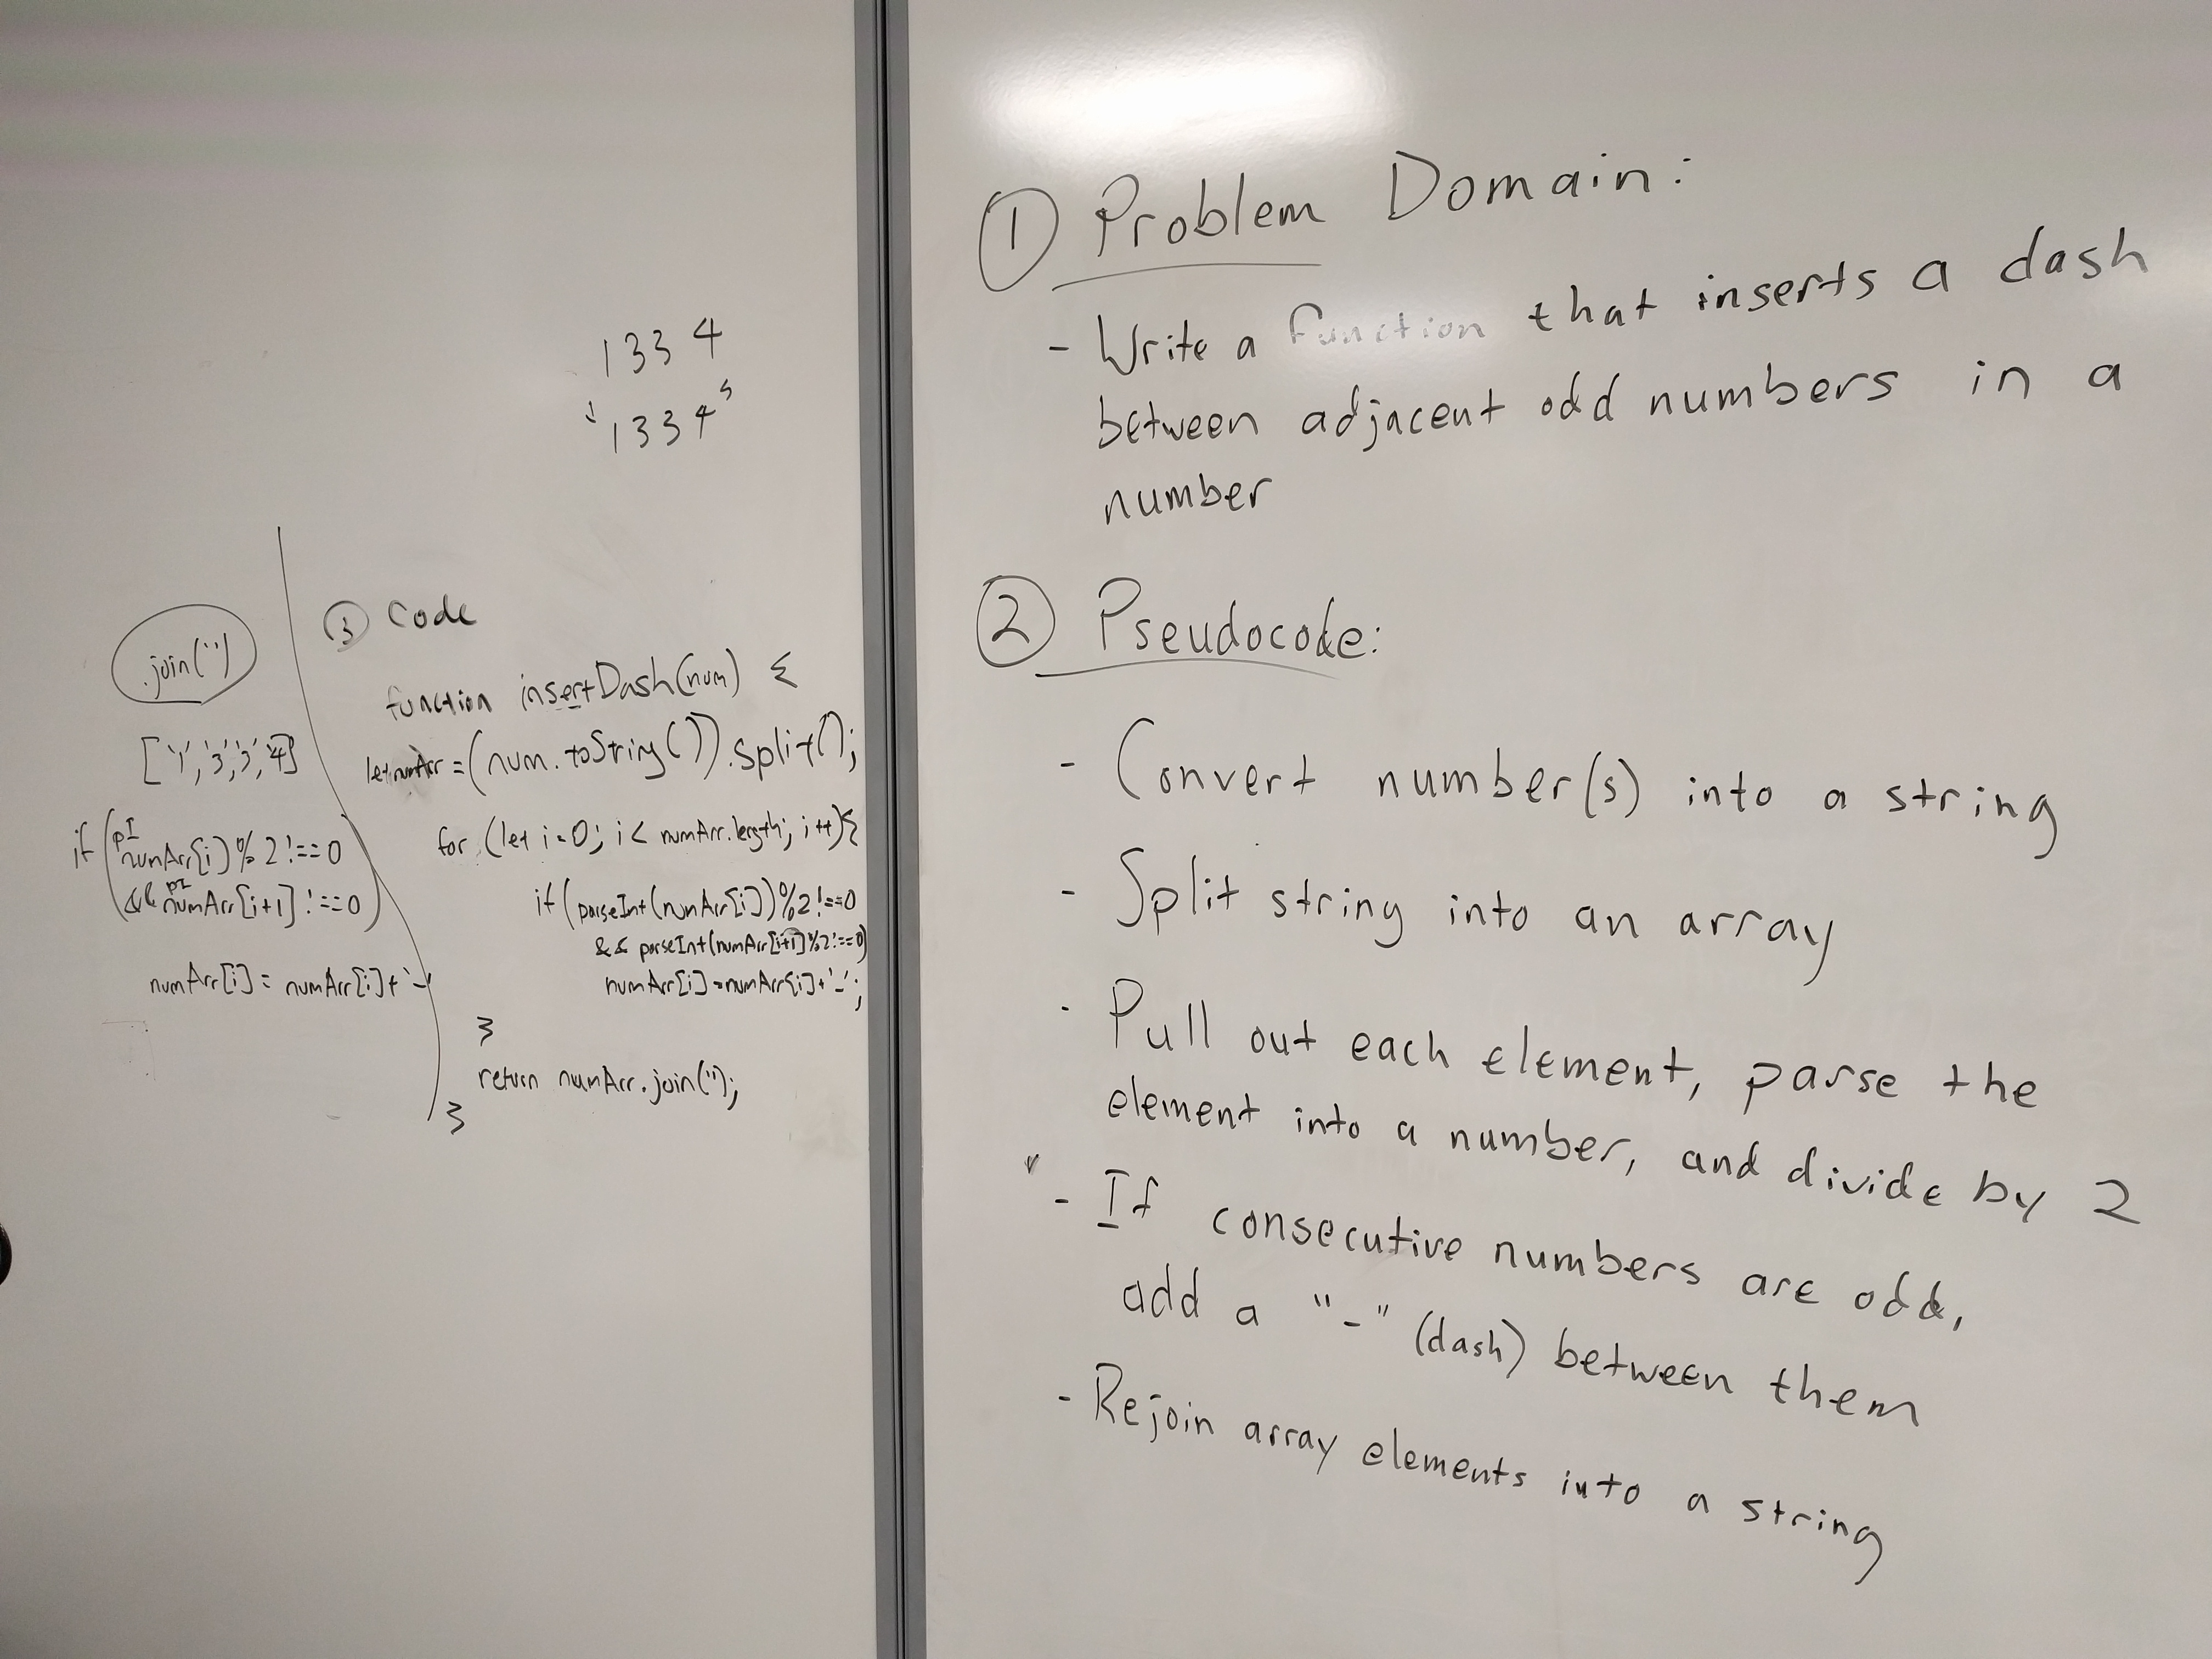 1334
'1334'
.join('')
['1','3','3','4']
if (pI numArr[i])%2!==0
&& pI numArr[i+1]!==0)
numArr[i]= numArr[i]+'-'
③ Code
function insertDash(num) {
let numArr=(num.toString()).split('');
for (let i=0; i< numArr.length; i++){
if(parseInt(numArr[i])%2!==0
&& parseInt(numArr[i+1]%2!==0)
numArr[i]=numArr[i]+'-';
}
return numArr.join('');
}
① Problem Domain:
- Write a function that inserts a dash
between adjacent odd numbers in a
number
② Pseudocode:
- Convert number(s) into a string
- Split string into an array
- Pull out each element, parse the
element into a number, and divide by 2
- If consecutive numbers are odd,
add a "-" (dash) between them
- Rejoin array elements into a string